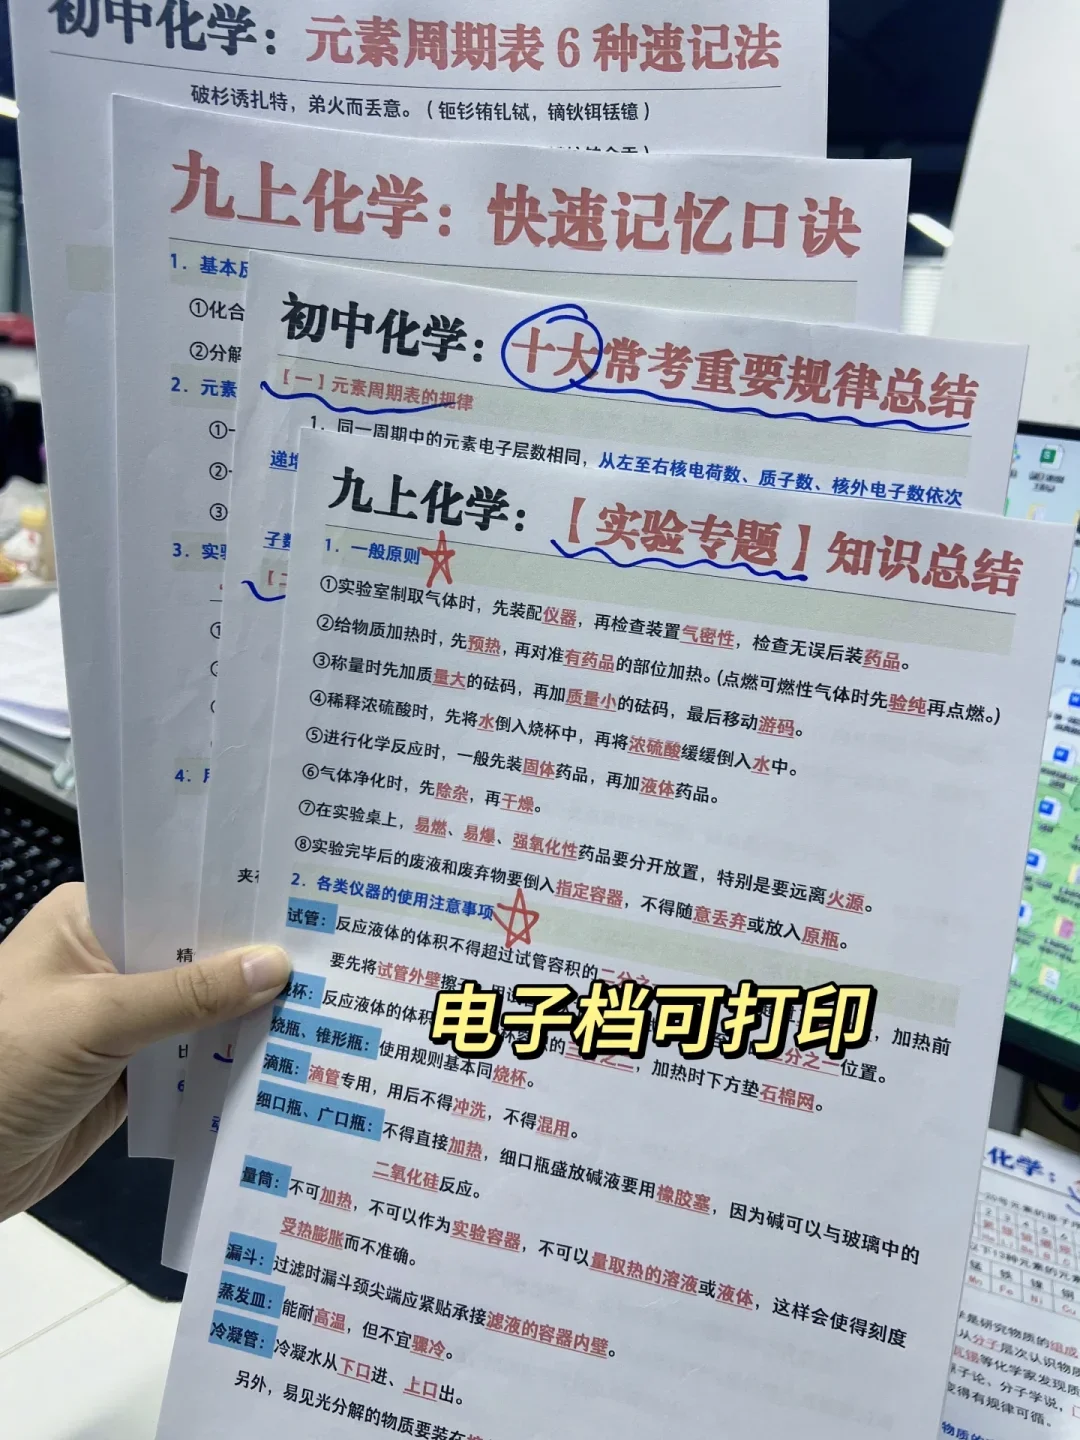 初中化学：元素周期表6种速记法
破杉诱扎特，弟火而丢意。（钷钐铕钆铽，镝钬铒铥镱）
九上化学：快速记忆口诀
1. 基本反
①化合
②分解
2. 元素
①一
②
③
3. 实验
4.
初中化学：十大常考重要规律总结
【一】元素周期表的规律
1. 同一周期中的元素电子层数相同，从左至右核电荷数、质子数、核外电子数依次
递增
子数
【二
九上化学：【实验专题】知识总结
1. 一般原则
①实验室制取气体时，先装配仪器，再检查装置气密性，检查无误后装药品。
②给物质加热时，先预热，再对准有药品的部位加热。（点燃可燃性气体时先验纯再点燃。）
③称量时先加质量大的砝码，再加质量小的砝码，最后移动游码。
④稀释浓硫酸时，先将水倒入烧杯中，再将浓硫酸缓缓倒入水中。
⑤进行化学反应时，一般先装固体药品，再加液体药品。
⑥气体净化时，先除杂，再干燥。
⑦在实验桌上，易燃、易爆、强氧化性药品要分开放置，特别是要远离火源。
⑧实验完毕后的废液和废弃物要倒入指定容器，不得随意丢弃或放入原瓶。
2. 各类仪器的使用注意事项
试管：反应液体的体积不得超过试管容积的二分之一
加热前
要先将试管外壁擦干
三分之一位置。
烧杯：反应液体的体积
的三分之二，加热时下方垫石棉网。
烧瓶、锥形瓶：使用规则基本同烧杯。
滴瓶：滴管专用，用后不得冲洗，不得混用。
细口瓶、广口瓶：不得直接加热，细口瓶盛放碱液要用橡胶塞，因为碱可以与玻璃中的
二氧化硅反应。
量筒：不可加热，不可以作为实验容器，不可以量取热的溶液或液体，这样会使得刻度
受热膨胀而不准确。
漏斗：过滤时漏斗颈尖端应紧贴承接滤液的容器内壁。
蒸发皿：能耐高温，但不宜骤冷。
冷凝管：冷凝水从下口进、上口出。
另外，易见光分解的物质要装在
电子档可打印
化学：
锰 铁 镍 铜
Mn Fe Ni Cu
是研究物质的组成
从分子层次认识物质
等化学家发现质
子论、分子学说，
变得有规律可循。